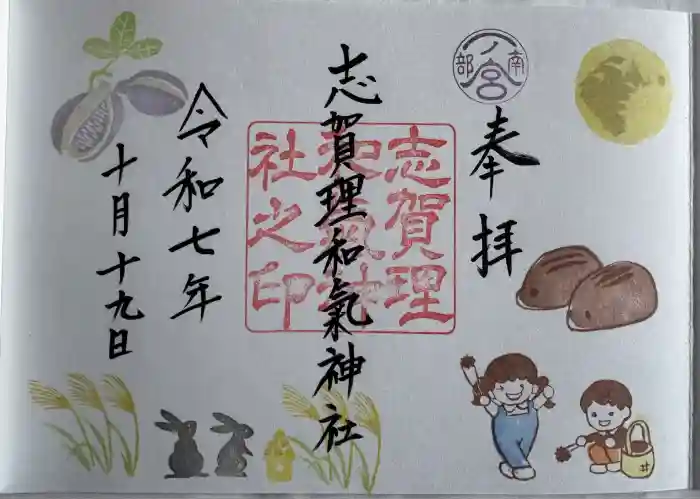 奉拝
南部一ノ宮
志賀理和氣神社
志賀理和氣神社之印
令和七年
十月十九日